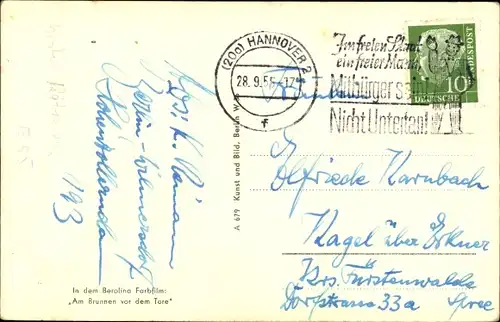 (20a) HANNOVER 2
28.9.5
f
Im freien Staat
ein freier Mann
Mitbürger sein
Nicht Untertan!
DEUTSCHE BUNDESPOST
10
Elfriede Karnbach
Kagel über Erkner
Krs. Fürstenwalde
Dorfstrasse 33a Spree
Abs. K.
Berlin-Wilmersdorf
Hohenzollerndamm
193
A 679 Kunst und Bild, Berlin W
In dem Berolina Farbfilm:
„Am Brunnen vor dem Tore"